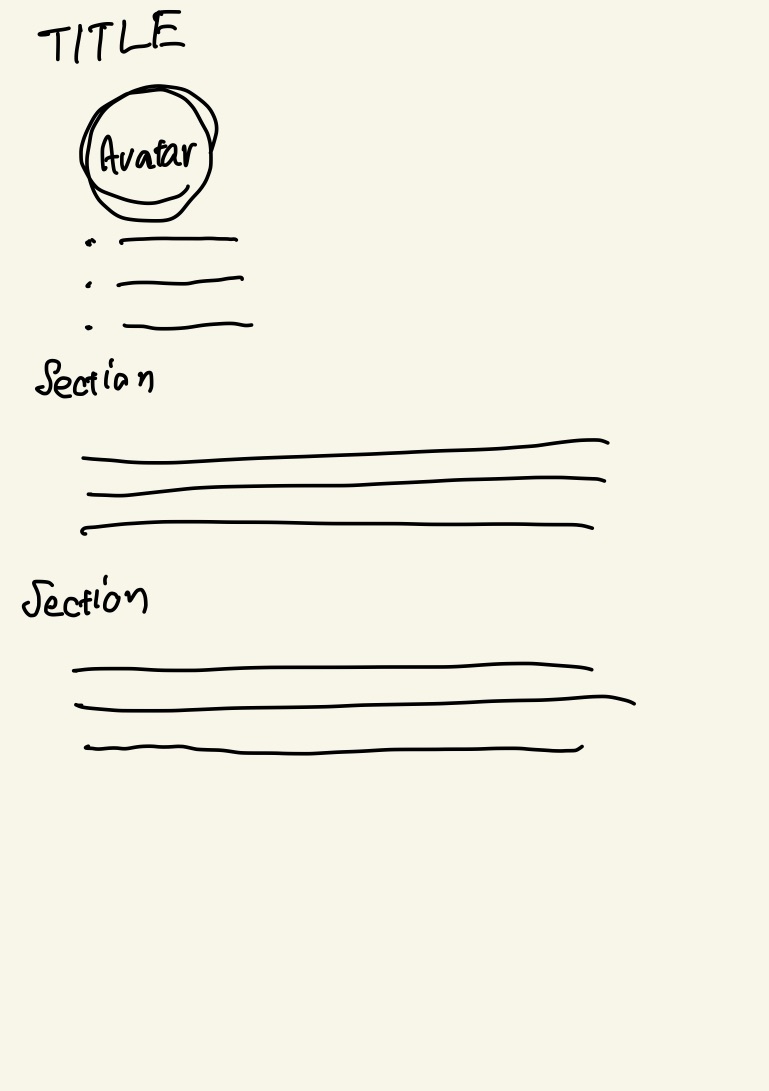 TITLE
Avatar
Section
Section